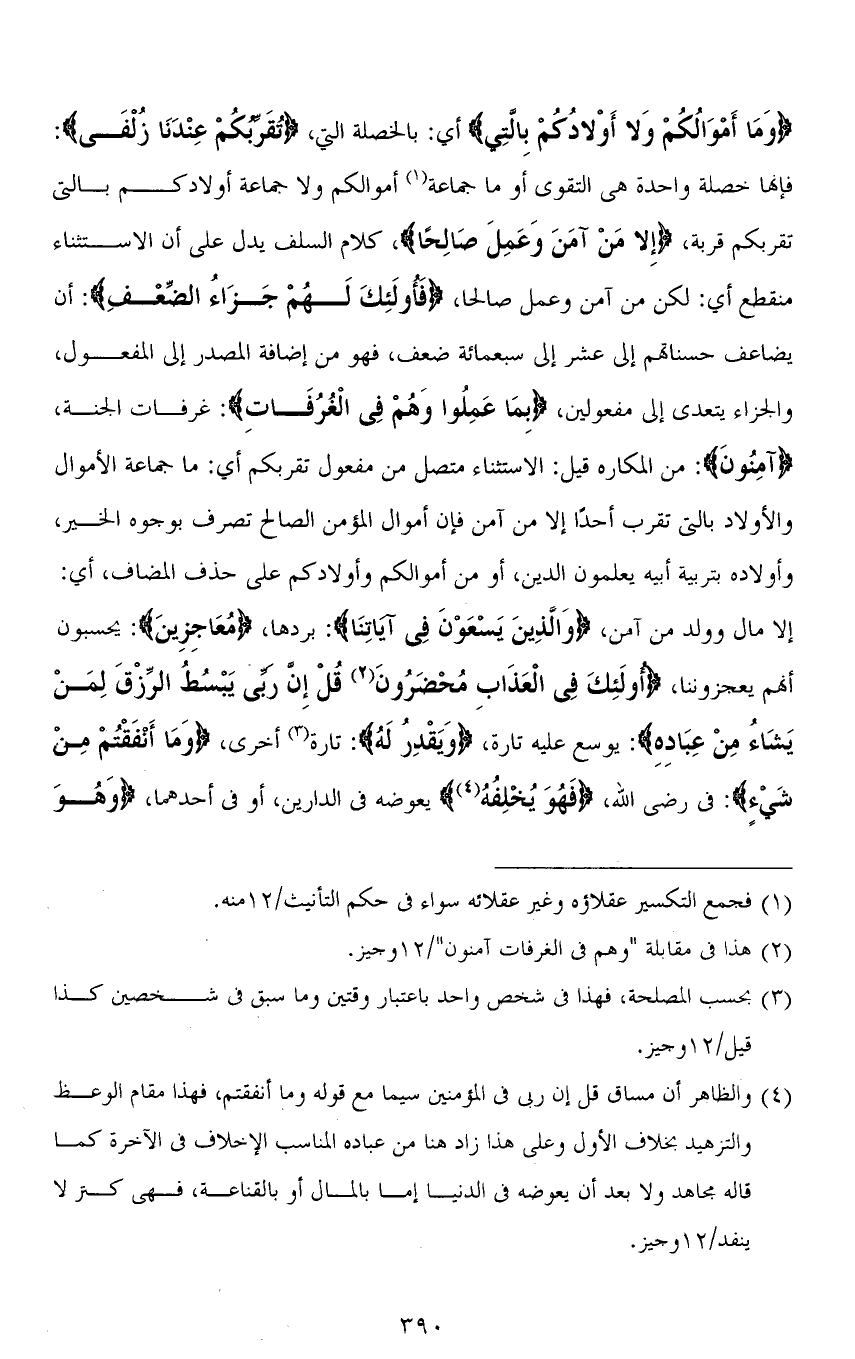 ﴿وَمَا أَمْوَالُكُمْ وَلا أَوْلادُكُمْ بِالَّتِي﴾ أي: بالخصلة التي، ﴿تُقَرِّبُكُمْ عِنْدَنَا زُلْفَـــى﴾:
فإنها خصلة واحدة هى التقوى أو ما جماعة(١) أموالكم ولا جماعة أولادكـــــم بـــالتى
تقربكم قربة، ﴿إِلا مَنْ آمَنَ وَعَمِلَ صَالِحًا﴾، كلام السلف يدل على أن الاســـتثناء
منقطع أي: لكن من آمن وعمل صالحا، ﴿فَأُولَئِكَ لَـــهُمْ جَـــزَاءُ الضِّعْـــفِ﴾: أن
يضاعف حسناتهم إلى عشر إلى سبعمائة ضعف، فهو من إضافة المصدر إلى المفعـــول،
والجزاء يتعدى إلى مفعولين، ﴿بِمَا عَمِلُوا وَهُمْ فِى الْغُرُفَـــاتِ﴾: غرفـات الجنـــة،
﴿آمِنُونَ﴾: من المكاره قيل: الاستثناء متصل من مفعول تقربكم أي: ما جماعة الأموال
والأولاد بالتى تقرب أحدًا إلا من آمن فإن أموال المؤمن الصالح تصرف بوجوه الخـــير،
وأولاده بتربية أبيه يعلمون الدين، أو من أموالكم وأولادكم على حذف المضاف، أي:
إلا مال وولد من آمن، ﴿وَالَّذِينَ يَسْعَوْنَ فِى آيَاتِنَا﴾: بردها، ﴿مُعَاجِزِينَ﴾: يحسبون
أنهم يعجزوننا، ﴿أُولَئِكَ فِى الْعَذَابِ مُحْضَرُونَ(٢) قُلْ إِنَّ رَبِّى يَبْسُطُ الرِّزْقَ لِمَـــنْ
يَشَاءُ مِنْ عِبَادِهِ﴾: يوسع عليه تارة، ﴿وَيَقْدِرُ لَهُ﴾: تارة(٣) أخرى، ﴿وَمَا أَنْفَقْتُمْ مِـنْ
شَيْءٍ﴾: فى رضى الله، ﴿فَهُوَ يُخْلِفُهُ(٤)﴾ يعوضه فى الدارين، أو فى أحدهما، ﴿وَهُـــوَ
(١) فجمع التكسير عقلاؤه وغير عقلائه سواء فى حكم التأنيث/١٢منه.
(٢) هذا فى مقابلة "وهم فى الغرفات آمنون"/١٢وجيز.
(٣) بحسب المصلحة، فهذا فى شخص واحد باعتبار وقتين وما سبق فى شـــخصين كـــذا
قيل/١٢وجيز.
(٤) والظاهر أن مساق قل إن ربى فى المؤمنين سيما مع قوله وما أنفقتم، فهذا مقام الوعـــظ
والتزهيد بخلاف الأول وعلى هذا زاد هنا من عباده المناسب الإخلاف فى الآخرة كمـــا
قاله مجاهد ولا بعد أن يعوضه فى الدنيـــا إمـــا بالمـــال أو بالقناعـــة، فـــهى كـــتر لا
ينفد/١٢وجيز.
٣٩٠